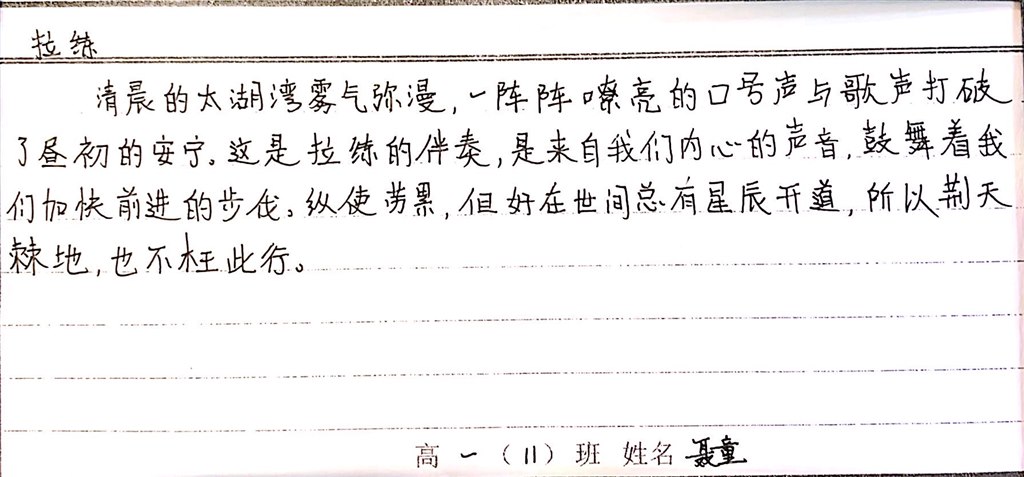 拉练
清晨的太湖湾雾气弥漫，一阵阵嘹亮的口号声与歌声打破
了昼初的安宁。这是拉练的伴奏，是来自我们内心的声音，鼓舞着我
们加快前进的步伐。纵使劳累，但好在世间总有星辰开道，所以荆天
棘地，也不枉此行。
高一（11）班 姓名 聂童